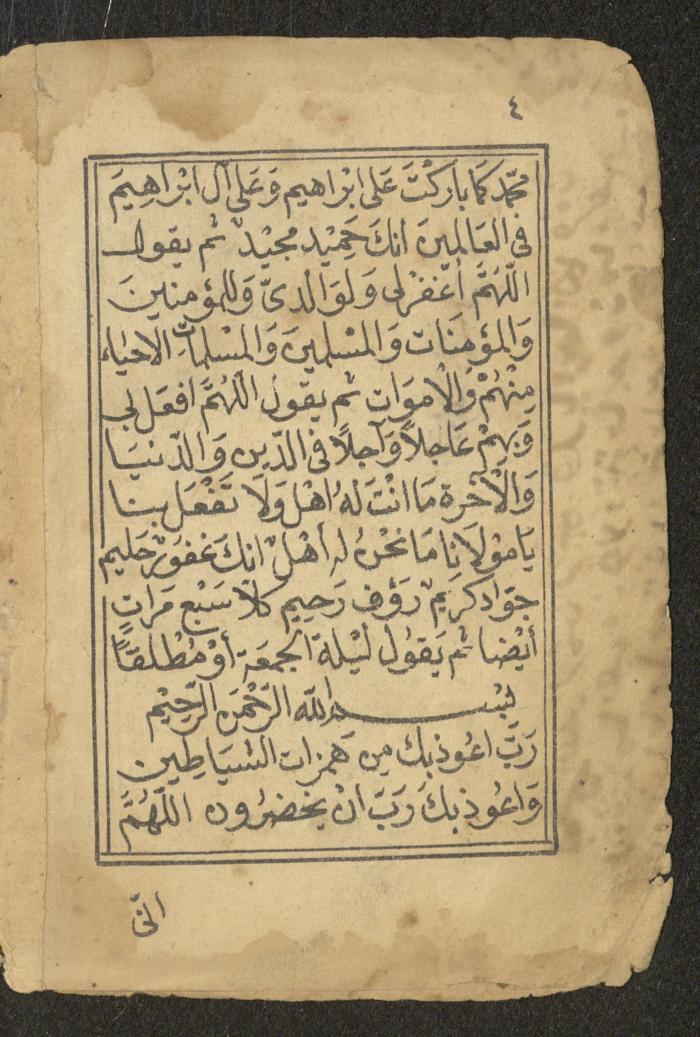 ٤
محمّد كَمَا بَارَكْتَ عَلى اِبْرَاهيم وَعَلى آلِ ابْرَاهِيمَ
فى العَالمينَ انكَ حَمِيْد مجيْدٌ ثم يقول
اللّهُمَّ اغْفِرْلى وَلِوَالدىّ وَللمؤمنينَ
وَالمؤمنَات وَالمسْلمينَ وَالمسْلماتِ الاحْيَاء
مِنْهُمْ وَالْامْوَاتِ ثم يقولُ اللّهُمَّ افعَل بى
وَبِهِمْ عَاجلاً وَآجلاً فى الدّين وَالدّنيَا
وَالْآخرة مَا انْتَ لَهُ اهْل وَلَا تَفْعَل بنا
يَا مَوْلَانَا مَا نحْنُ لهُ أهْلٌ انكَ غفورٌ حَليم
جَوَاد كَرِيمٌ رَؤُف رَحيم كلا سَبْع مَرات
أيْضا ثم يَقوُل لَيْلة الجمعَة أوْ مُطْلقاً
بسْــــــم الله الرّحْمَن الرّحِيْم
رَبّ اعُوذبكَ مِنْ هَمزات الشيَاطين
وَاعُوذ بكَ رَبّ انْ يحْضرُون اللّهُمَّ
انّى